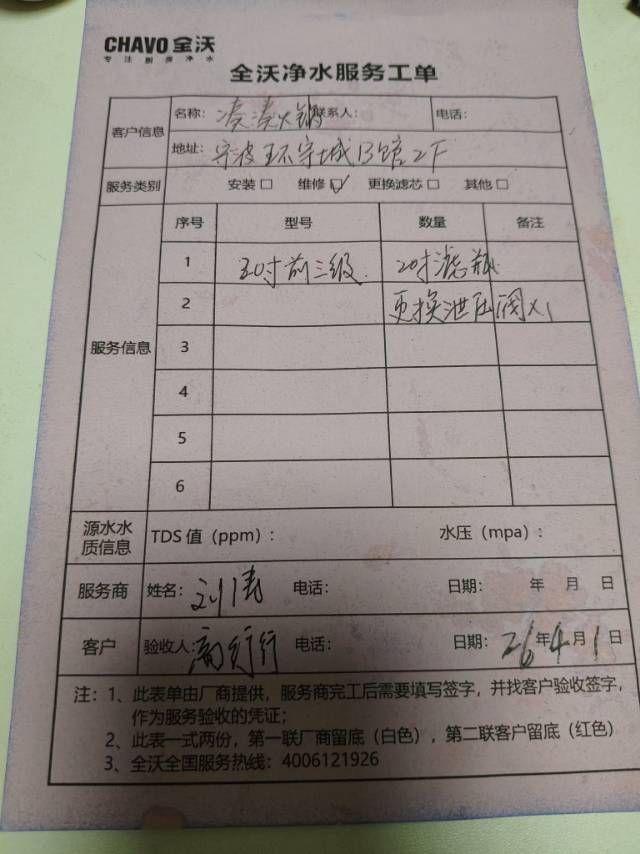 CHAVO 全沃
专注厨房净水
全沃净水服务工单
客户信息 名称：凑凑火锅 联系人： 电话：
地址：宁波环宇城B馆2F
服务类别 安装□ 维修☑ 更换滤芯□ 其他□
服务信息 序号 型号 数量 备注
1 20寸前三级 20寸滤瓶
2 更换泄压阀x1
3
4
5
6
源水水质信息 TDS值（ppm）： 水压（mpa）：
服务商 姓名：刘涛 电话： 日期： 年 月 日
客户 验收人： 电话： 日期：26年4月1日
注：1、此表单由厂商提供，服务商完工后需要填写签字，并找客户验收签字，
作为服务验收的凭证；
2、此表一式两份，第一联厂商留底（白色），第二联客户留底（红色）
3、全沃全国服务热线：4006121926